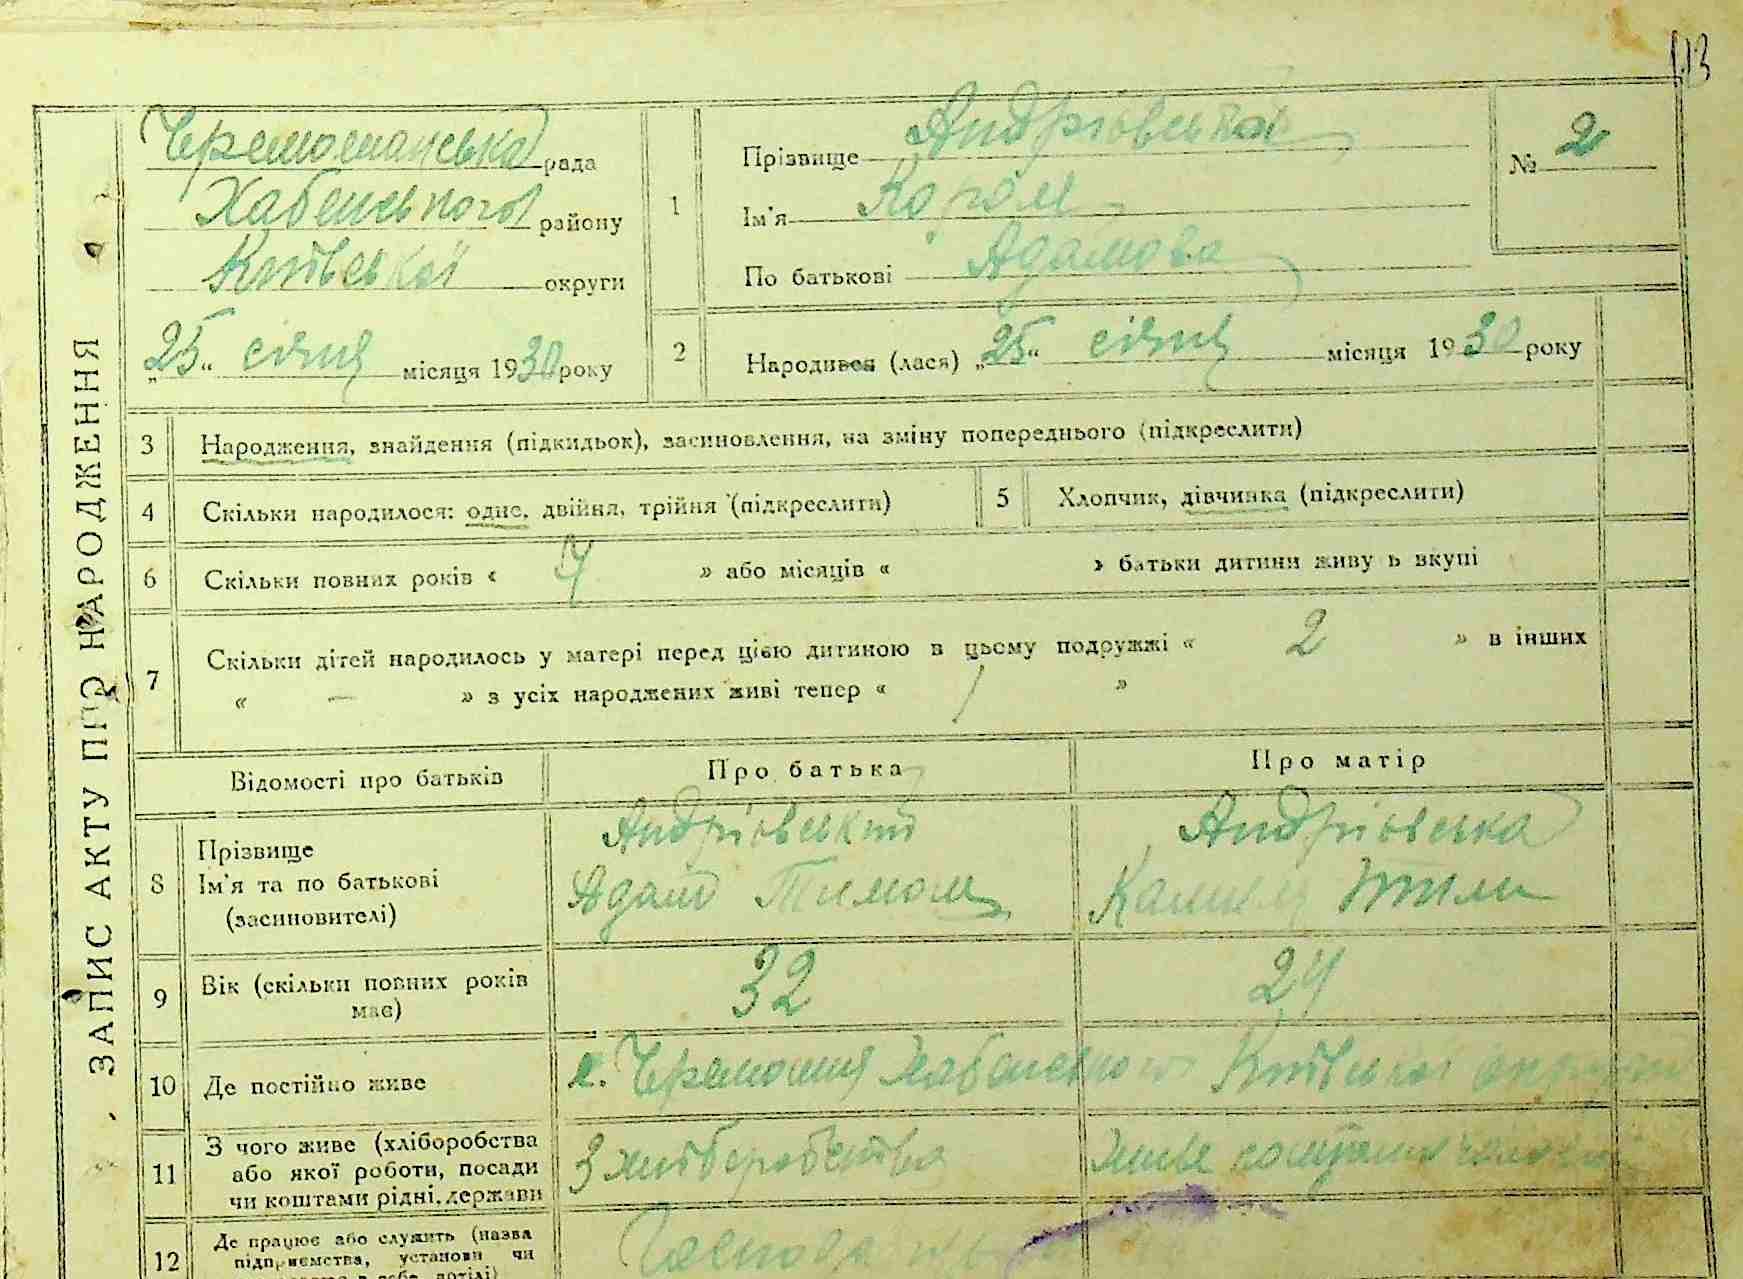 113
ЗАПИС АКТУ ПРО НАРОДЖЕННЯ
рада
Хабенського району
Київської округи
„25“ січня місяця 1930 року
1
Прізвище Андріовська
Ім'я
По батькові Адамова
№ 2
2
Народився (лася) „25“ січня місяця 1930 року
3 Народження, знайдення (підкидьок), засиновлення, на зміну попереднього (підкреслити)
4 Скільки народилося: одне, двійня, трійня (підкреслити)
5 Хлопчик, дівчинка (підкреслити)
6 Скільки повних років « » або місяців « » батьки дитини живу ь вкупі
7 Скільки дітей народилось у матері перед цією дитиною в цьому подружжі « 2 » в інших
« — » з усіх народжених живі тепер « »
Відомості про батьків
Про батька
Про матір
8 Прізвище
Ім'я та по батькові
(засиновителі)
Андріовський
Адам
Андріовська
9 Вік (скільки повних років
має)
32
24
10 Де постійно живе
с. Черемошня Київської округи
11 З чого живе (хліборобства
або якої роботи, посади
чи коштами рідні, держави
З хліборобства
живе коштами
12 Де працює або служить (назва
підприємства, установи чи